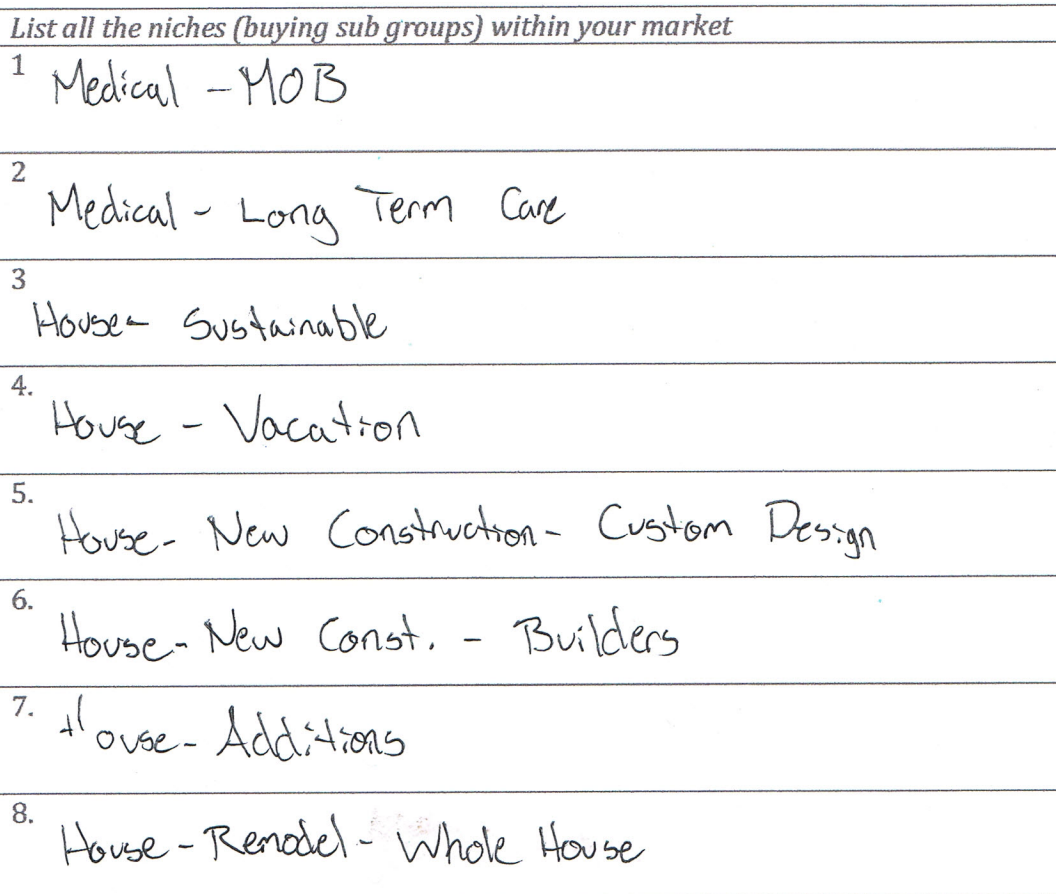 List all the niches (buying sub groups) within your market
1 Medical - MOB
2 Medical - Long Term Care
3 House- Sustainable
4. House - Vacation
5. House- New Construction- Custom Design
6. House- New Const. - Builders
7. House- Additions
8. House - Remodel - Whole House